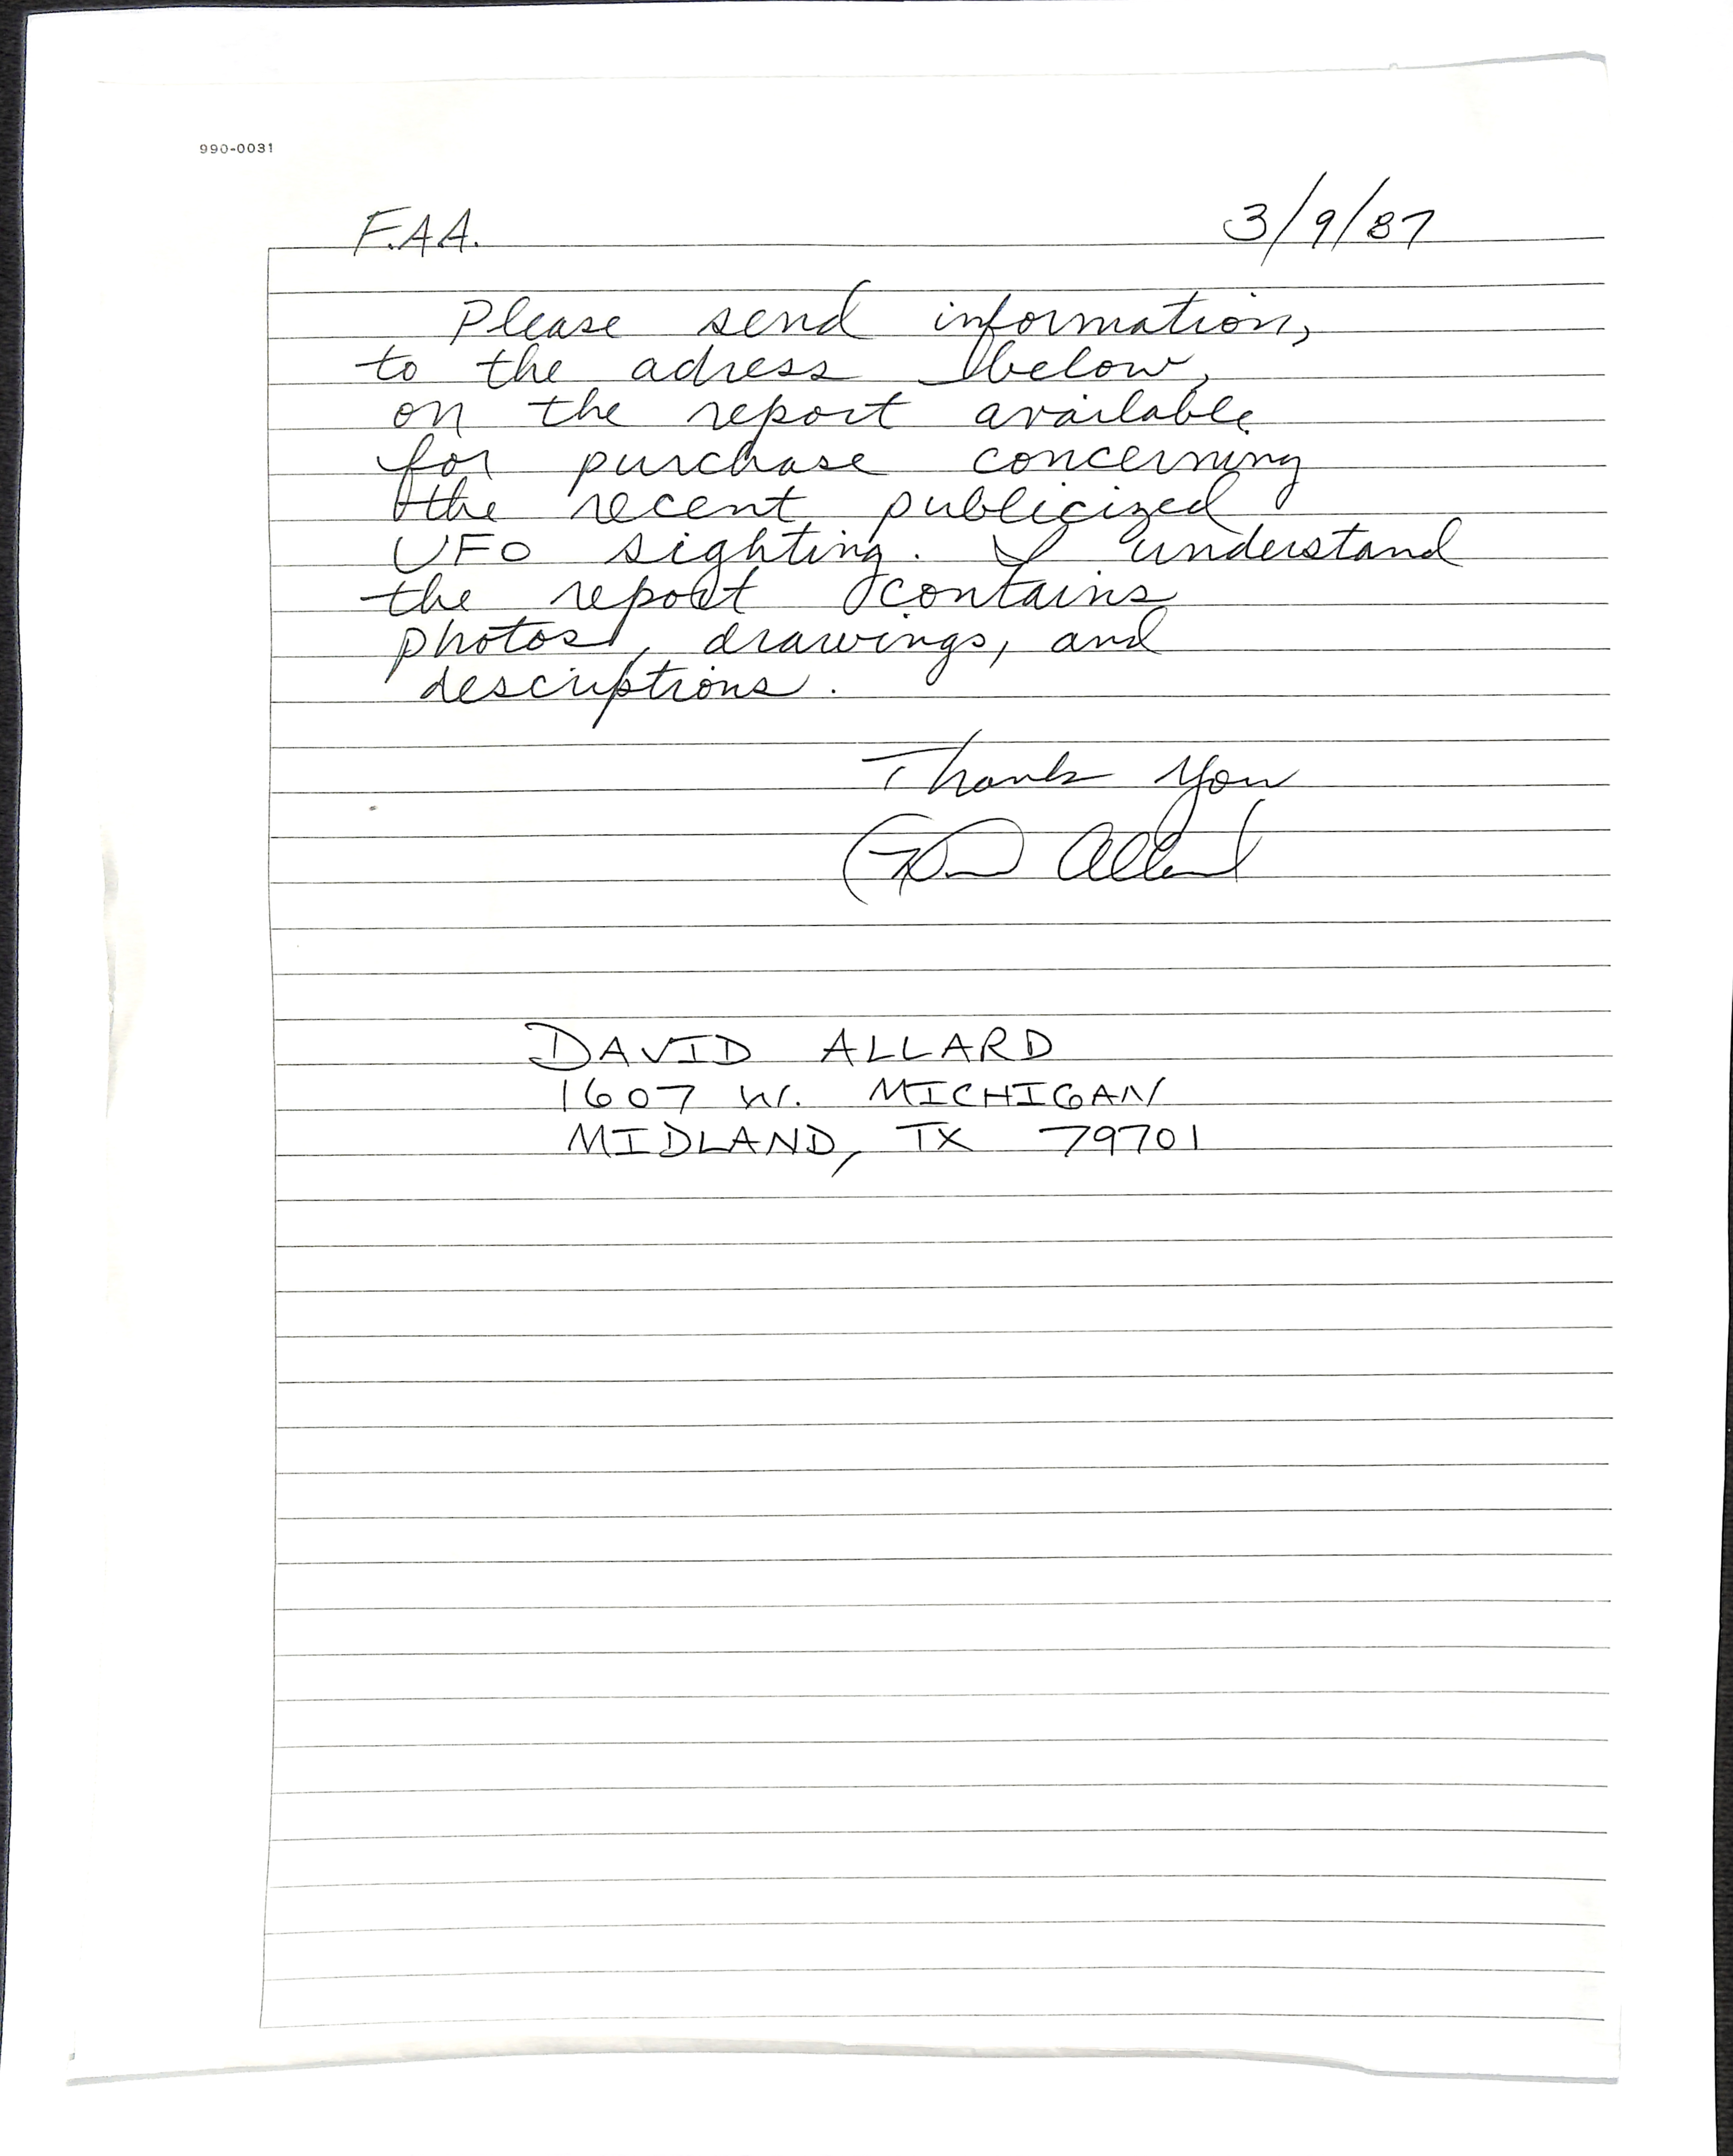 990-0031
F.A.A. 3/9/87
Please send information,
to the adress below,
on the report available
for purchase concerning
the recent publicized
UFO sighting. I understand
the report contains
photos, drawings, and
descriptions.
Thank You
Allard
DAVID ALLARD
1607 W. MICHIGAN
MIDLAND, TX 79701